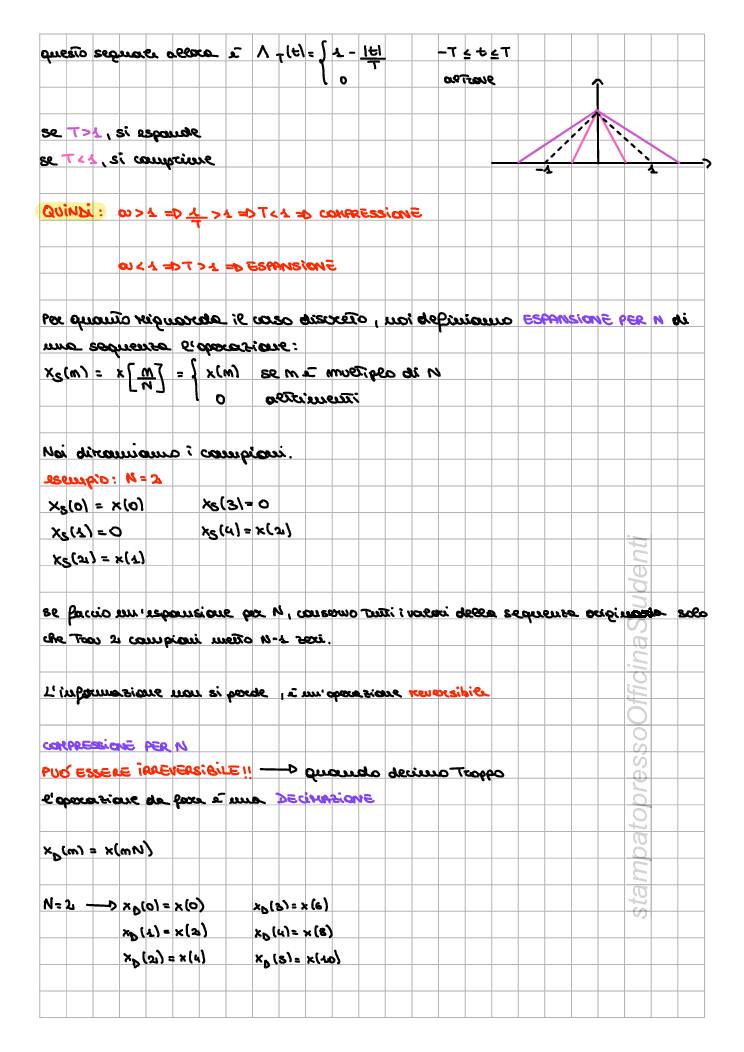 questo segnale allora è Λ_T(t) = { 1 - |t|/T   -T ≤ t ≤ T
0   altrove
se T>1, si espande
se T<1, si comprime
-1   1
QUINDI: a>1 ⇒ 1/T >1 ⇒ T<1 ⇒ COMPRESSIONE
a<1 ⇒ T>1 ⇒ ESPANSIONE
Per quanto riguarda il caso discreto, noi definiamo ESPANSIONE PER N di
una sequenza l'operazione:
x_S(n) = x[n/N] = { x(n) se n è multiplo di N
0   altrimenti
Noi diramiamo i campioni.
esempio: N=2
x_S(0) = x(0)   x_S(3)=0
x_S(1)=0   x_S(4)=x(2)
x_S(2)=x(1)
se faccio un'espansione per N, conservo tutti i valori della sequenza originaria solo
che tra 2 campioni metto N-1 zeri.
L'informazione non si perde, è un'operazione reversibile
COMPRESSIONE PER N
PUÓ ESSERE IRREVERSIBILE!! → quando decimo troppo
l'operazione da fare è una DECIMAZIONE
x_D(n) = x(nN)
N=2 → x_D(0)=x(0)   x_D(3)=x(6)
x_D(1)=x(2)   x_D(4)=x(8)
x_D(2)=x(4)   x_D(5)=x(10)
stampatopressoOfficinaStudenti